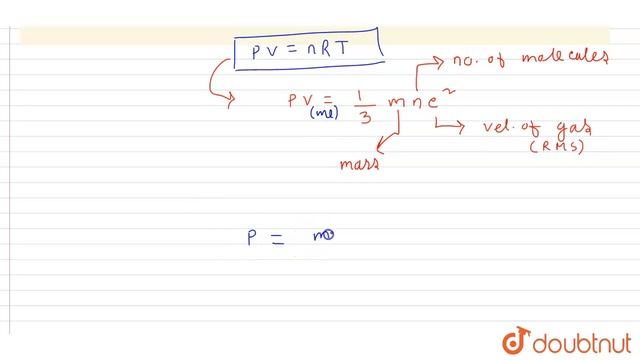 PV = nRT
no. of molecules
PV = 1/3 mnc²
(ml)
vel. of gas
(RMS)
mass
P = m
doubtnut